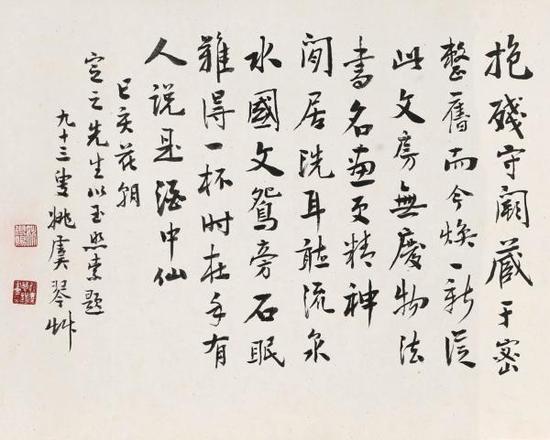 抱殘守闕藏于密
整舊而今煥一新從
此文房無廢物法
書名畫更精神
閒居洗耳聽流泉
水國文鴛旁石眠
難得一杯時在手有
人說是酒中仙
己亥花朝
定之先生以玉照索題
九十三叟姚虞琴草